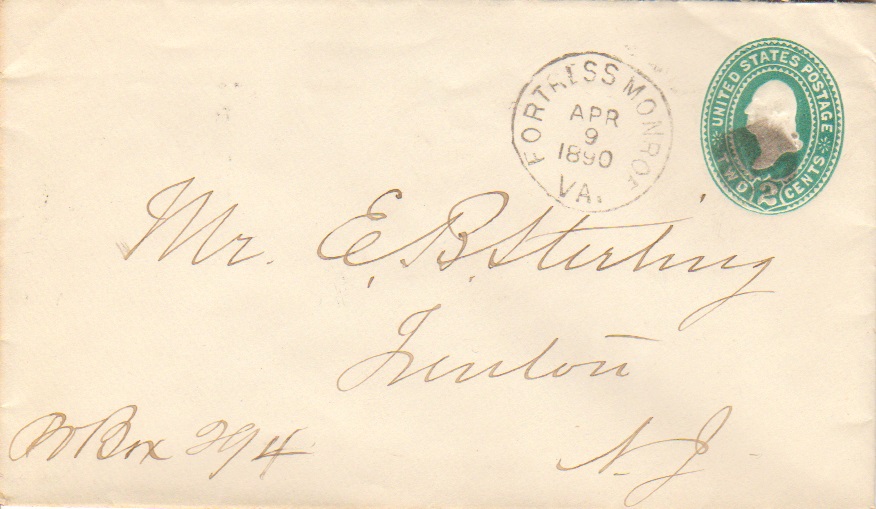 FORTRESS MONROE
APR
9
1890
VA.
UNITED STATES POSTAGE
TWO 2 CENTS
Mr. E. B. Sterling
Trenton
N. J.
PO Box 294